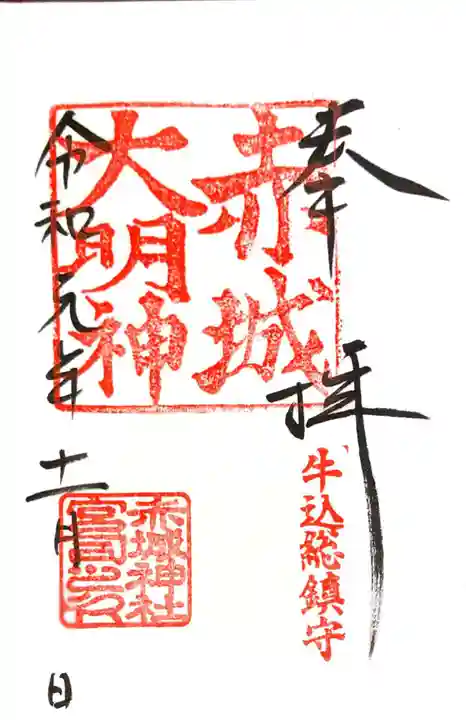 奉拝
牛込総鎮守
赤城
大明神
令和元年十一月 日
赤城神社
宮司之印